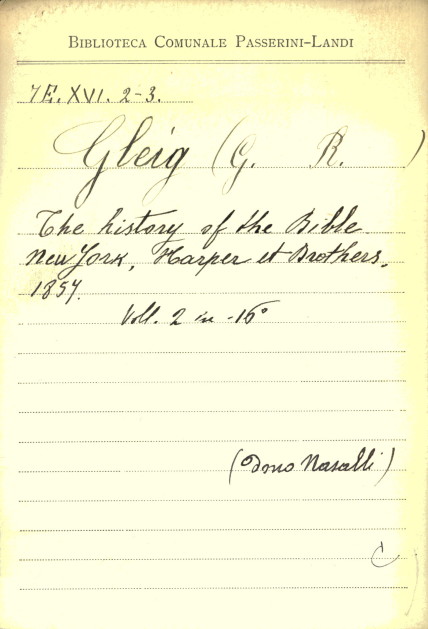 BIBLIOTECA COMUNALE PASSERINI-LANDI
7E. XVI. 2-3.
Gleig (G. R. )
The history of the Bible.
New York, Harper et Brothers,
1857.
Voll. 2 in -16°
(Dono Nasalli)
C